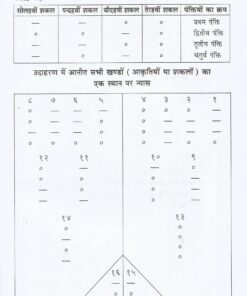 सोलहवीं शकल पन्द्रहवीं शकल चौदहवीं शकल तेरहवीं शकल पंक्तियों का क्रम
— — ० ० प्रथम पंक्ति
० — — ० द्वितीय पंक्ति
० — ० ० तृतीय पंक्ति
— — ० — चतुर्थ पंक्ति
उदाहरण में आनीत सभी खण्डों ( आकृतियों या शकलों ) का
एक स्थान पर न्यास
८ ७ ६ ५ ४ ३ २ १
१२ ११ १० ९
१४ १३
१६ १५